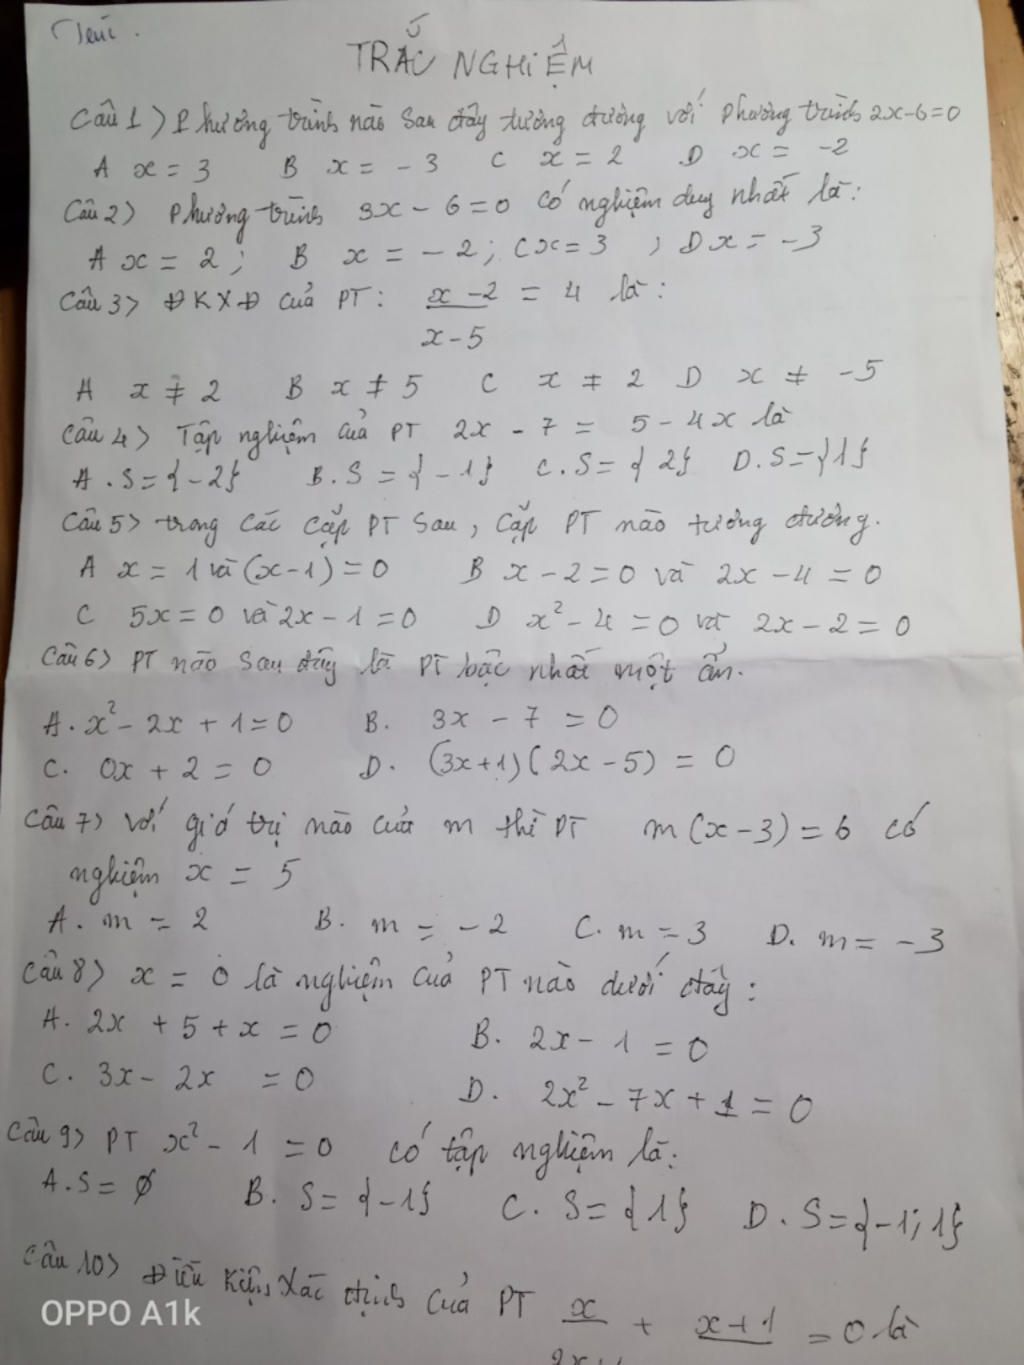 TRẮC NGHIỆM
Câu 1> Phương trình nào sau đây tương đương với phương trình 2x-6=0
A x = 3 B x = -3 C x = 2 D x = -2
Câu 2> Phương trình 3x - 6 = 0 có nghiệm duy nhất là:
A x = 2; B x = -2; C x = 3, D x = -3
Câu 3> ĐKXĐ của PT: x-2 = 4 là:
x-5
A x ≠ 2 B x ≠ 5 C x ≠ 2 D x ≠ -5
Câu 4> Tập nghiệm của PT 2x - 7 = 5 - 4x là
A. S = {-2} B. S = {-1} C. S = {2} D. S = {1}
Câu 5> trong các cặp PT sau, cặp PT nào tương đương.
A x = 1 và (x-1) = 0 B x - 2 = 0 và 2x - 4 = 0
C 5x = 0 và 2x - 1 = 0 D x² - 4 = 0 và 2x - 2 = 0
Câu 6> PT nào sau đây là PT bậc nhất một ẩn.
A. x² - 2x + 1 = 0 B. 3x - 7 = 0
C. 0x + 2 = 0 D. (3x+1)(2x-5) = 0
Câu 7> Với giá trị nào của m thì PT m(x-3) = 6 có
nghiệm x = 5
A. m = 2 B. m = -2 C. m = 3 D. m = -3
Câu 8> x = 0 là nghiệm của PT nào dưới đây:
A. 2x + 5 + x = 0 B. 2x - 1 = 0
C. 3x - 2x = 0 D. 2x² - 7x + 1 = 0
Câu 9> PT x² - 1 = 0 có tập nghiệm là:
A. S = ∅ B. S = {-1} C. S = {1} D. S = {-1; 1}
Câu 10> Điều kiện xác định của PT x + x+1 = 0 là
OPPO A1k